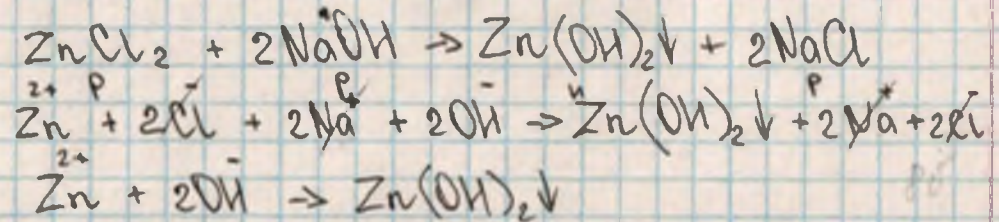 ZnCl₂ + 2NaOH → Zn(OH)₂↓ + 2NaCl
Zn²⁺ + 2Cl⁻ + 2Na⁺ + 2OH⁻ → Zn(OH)₂↓ + 2Na⁺ + 2Cl⁻
Zn²⁺ + 2OH⁻ → Zn(OH)₂↓